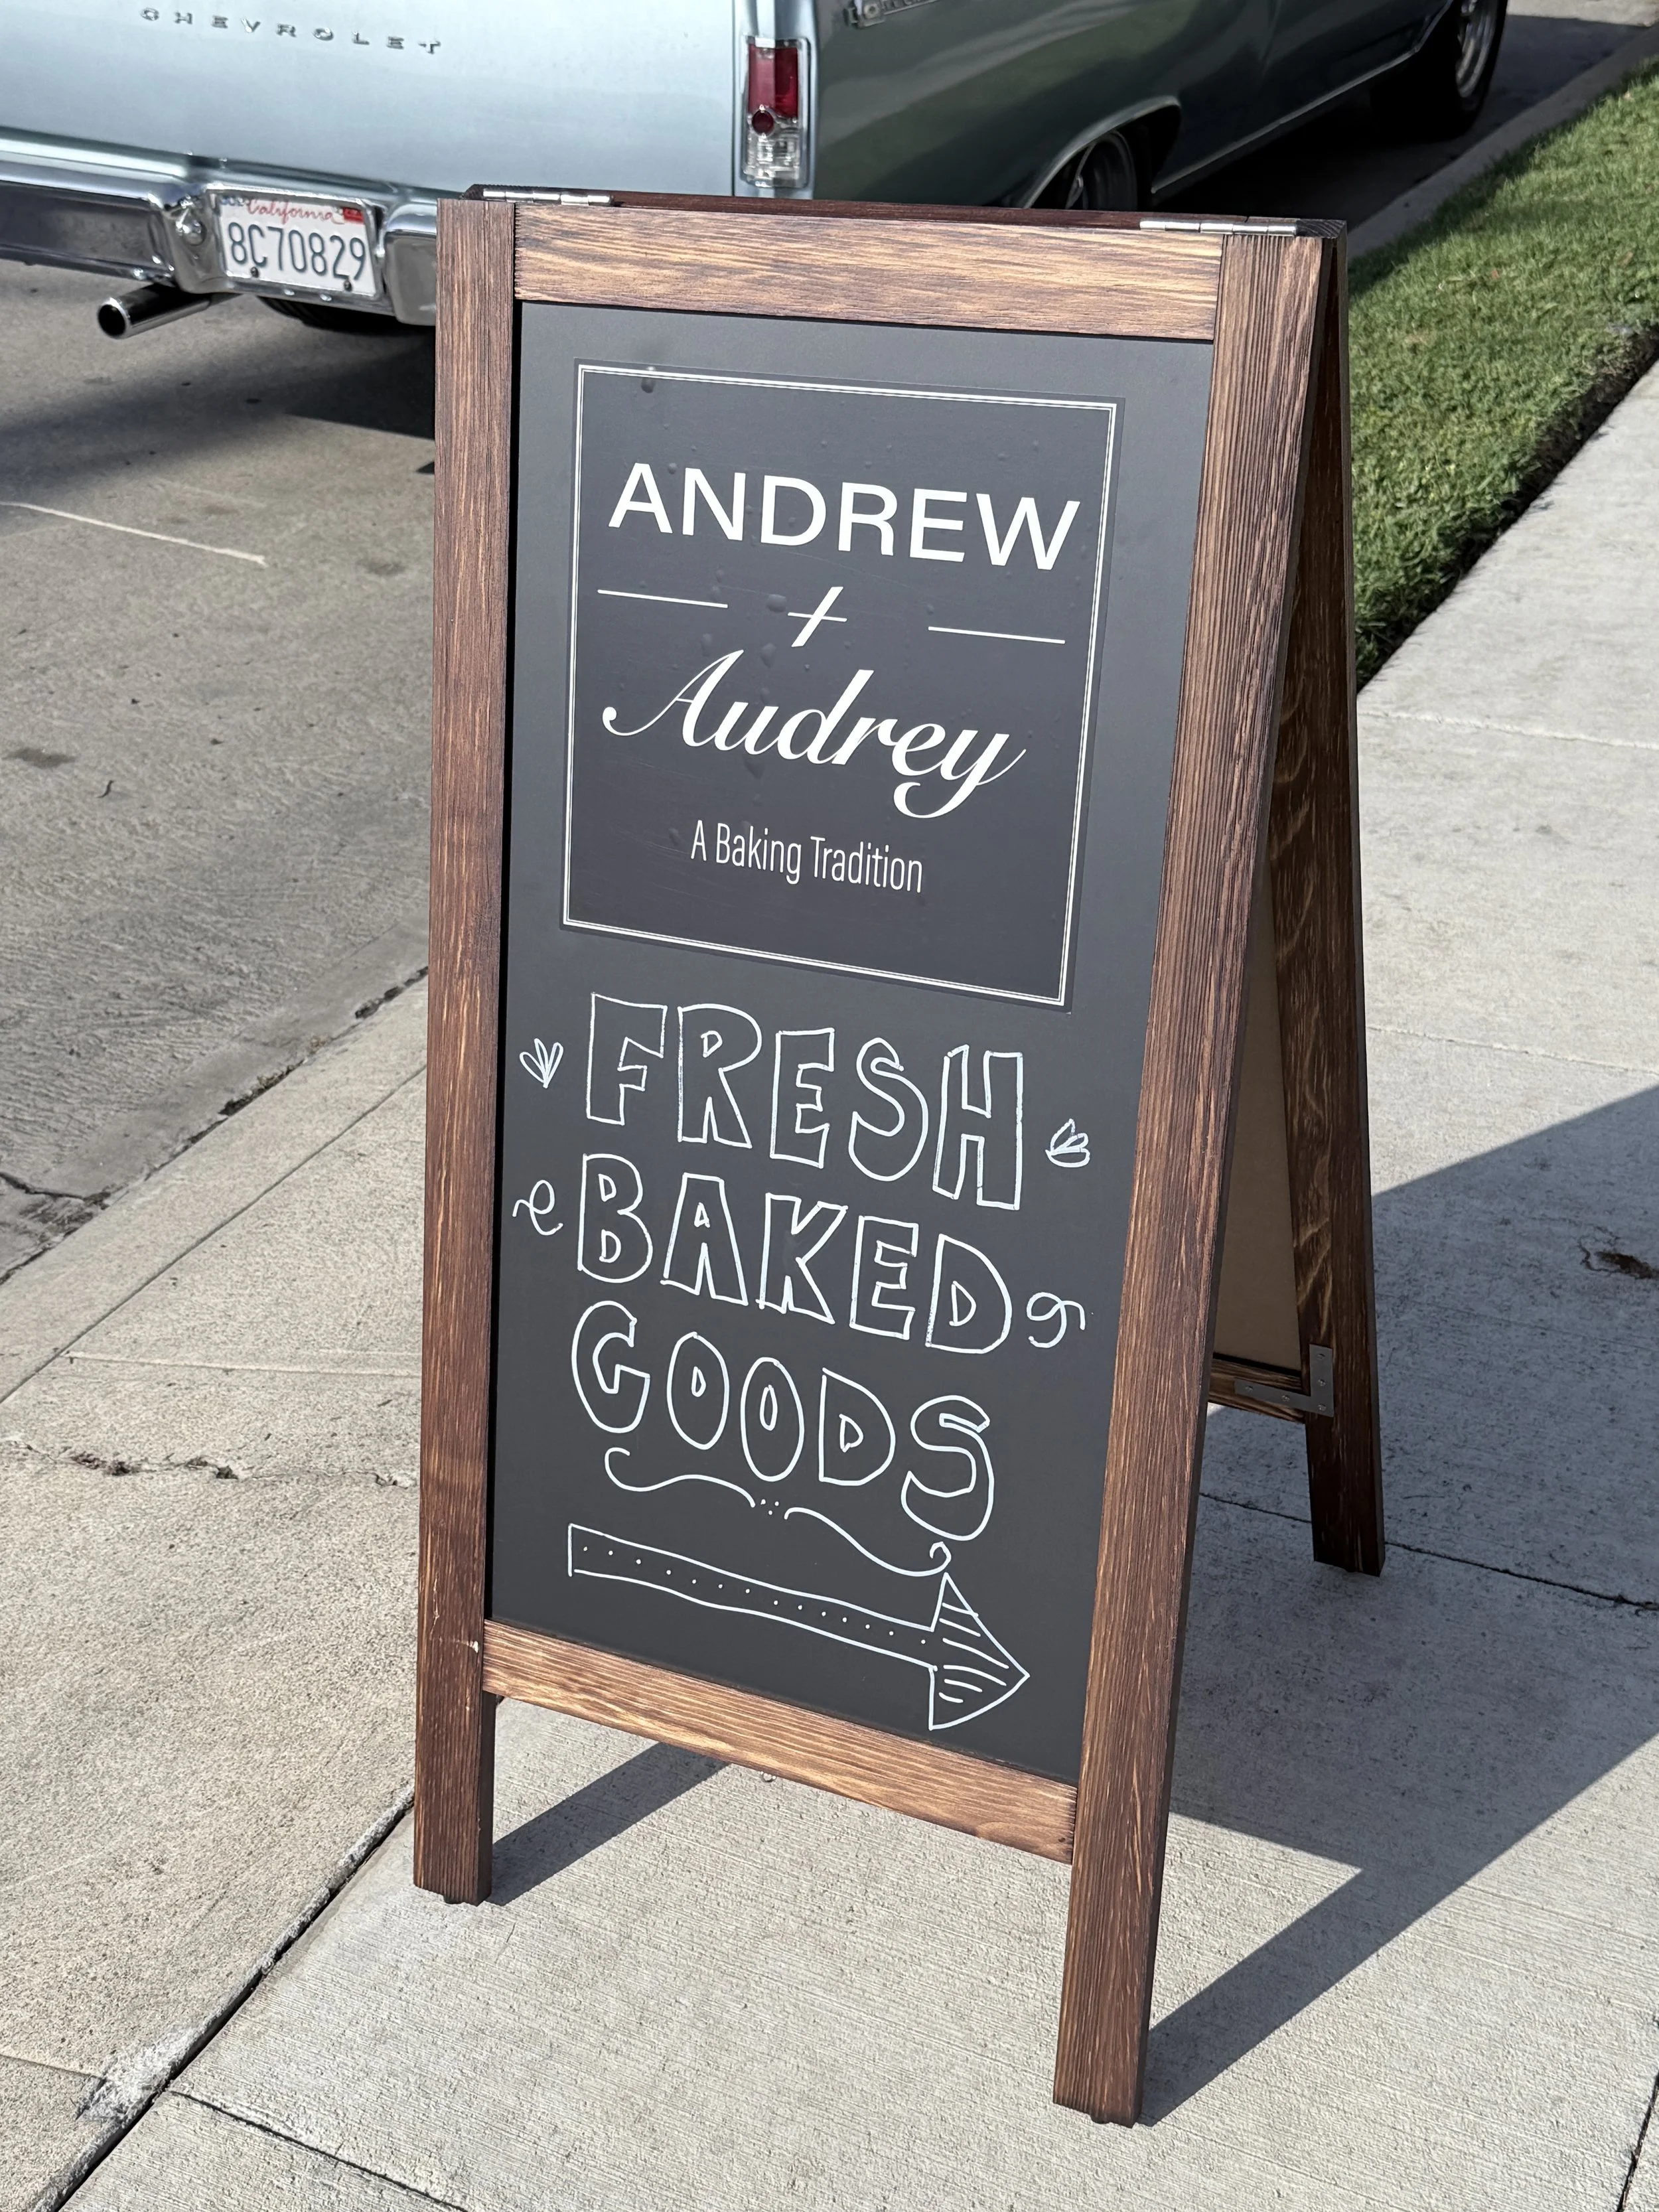 CHEVROLET
California
8C70829
ANDREW
+
Audrey
A Baking Tradition
FRESH
BAKED
GOODS